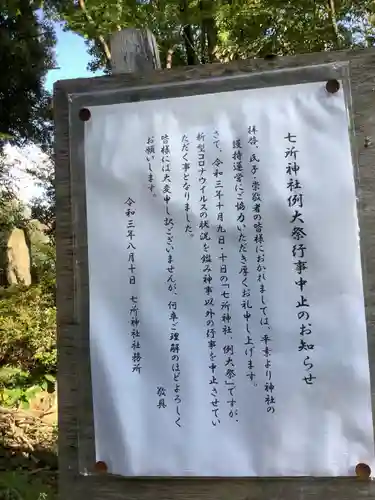 七所神社例大祭行事中止のお知らせ
拝啓、氏子・崇敬者の皆様におかれましては、平素より神社の
護持運営にご協力いただき厚くお礼申し上げます。
さて、令和三年十月九日・十日の「七所神社、例大祭」ですが、
新型コロナウイルスの状況を鑑み神事以外の行事を中止させてい
ただく事となりました。
皆様には大変申し訳ございませんが、何卒ご理解のほどよろしく
お願いします。
敬具
令和三年八月十日　七所神社社務所